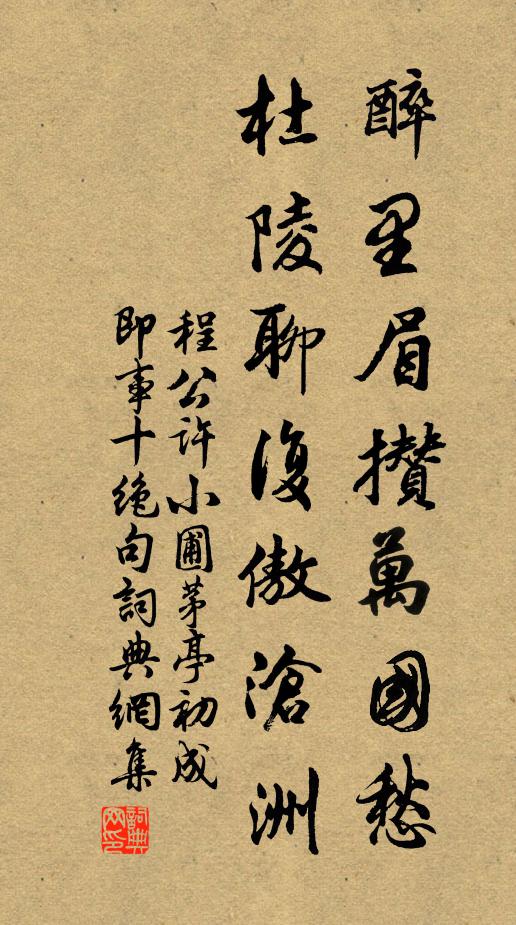 醉里眉攢萬國愁
杜陵聊復傲滄洲
程公許小圃茅亭初成
即事十絶句詞典網集
詞典
网印